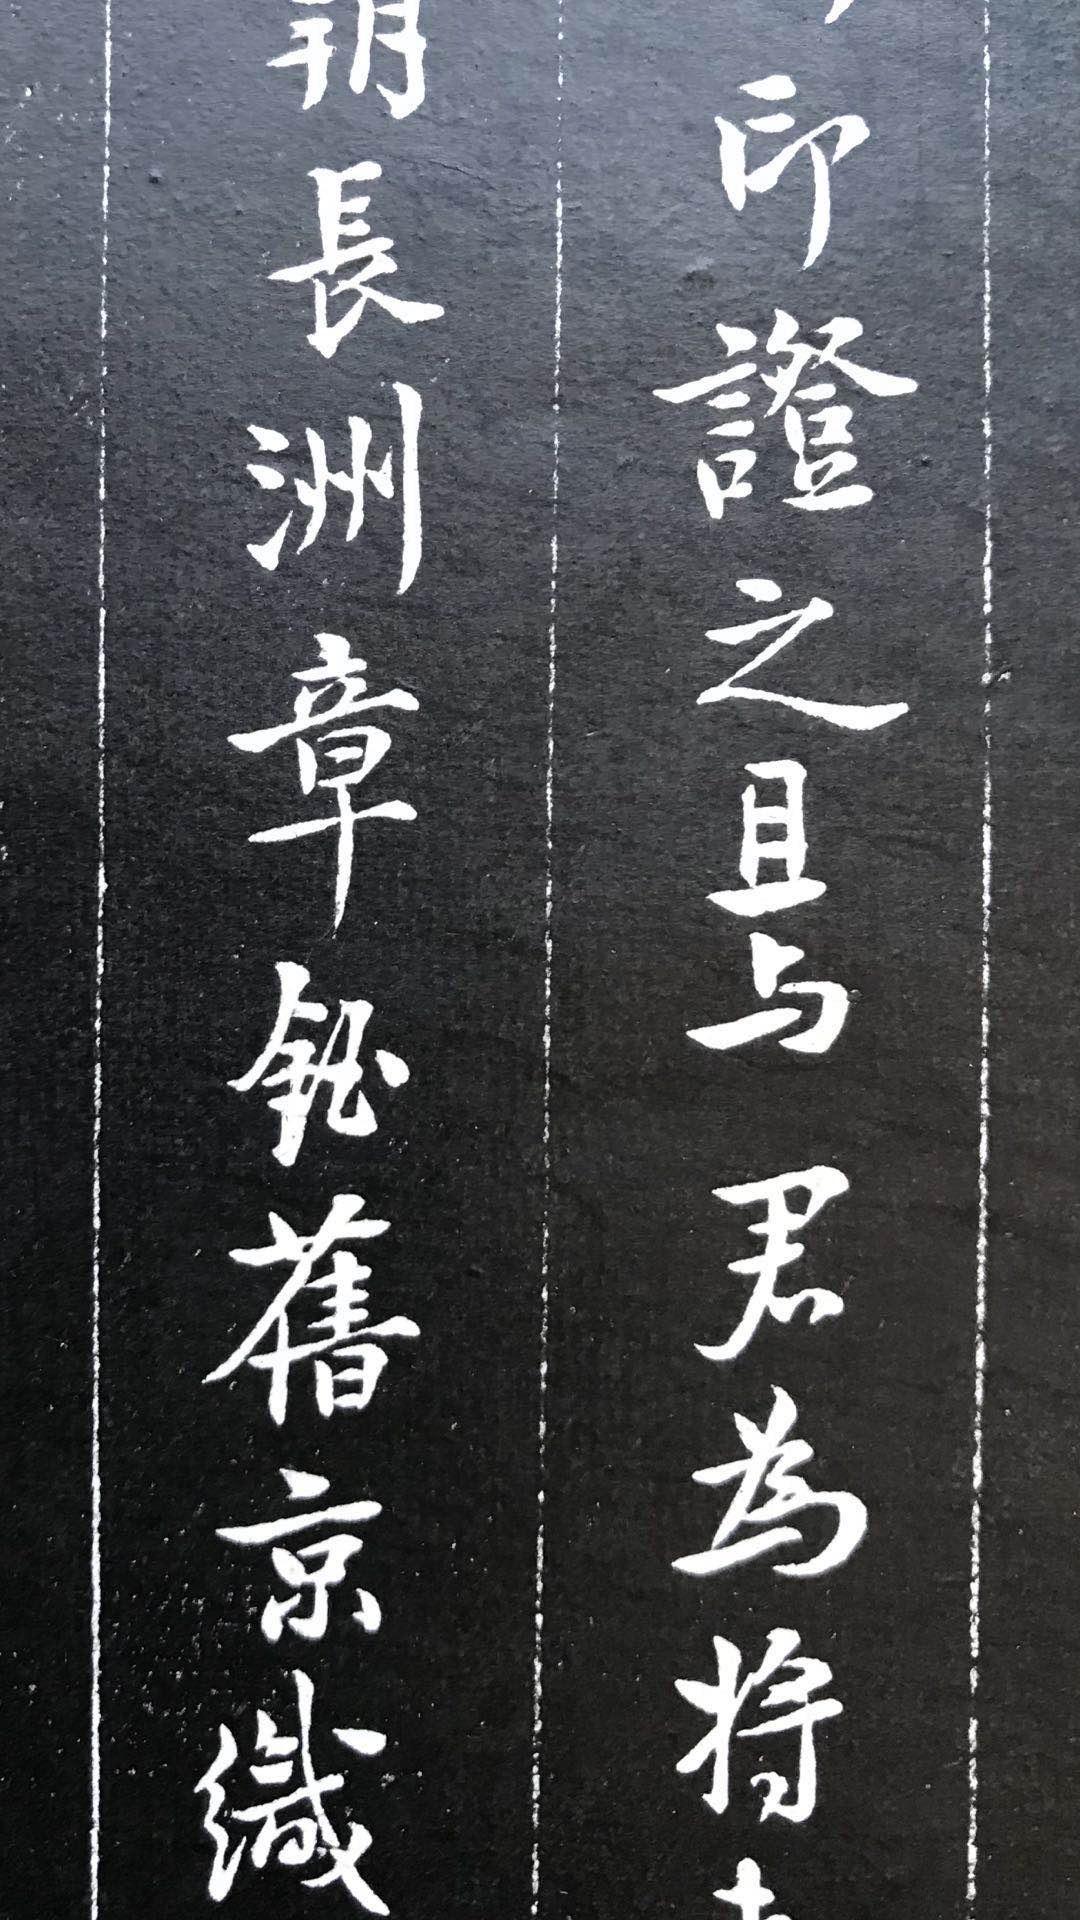 印證之且与君為将
朔長洲章鈺舊京織